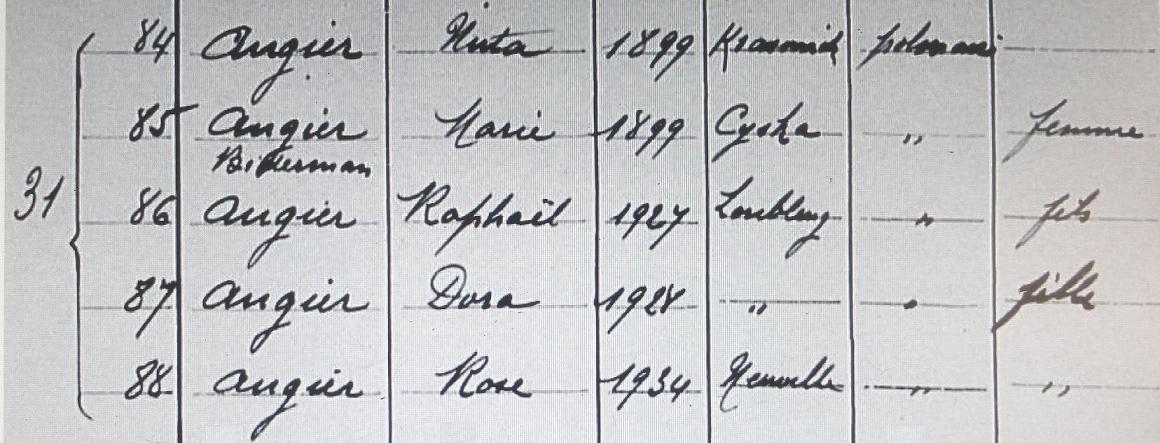 84 Angier Nuta 1899 Krasnik polonais
85 Angier Marie 1899 Cyska " femme
Biderman
31 86 Angier Raphaël 1927 Loubling " fils
87 Angier Dora 1928 " " fille
88 Angier Rose 1934 Neuville " "